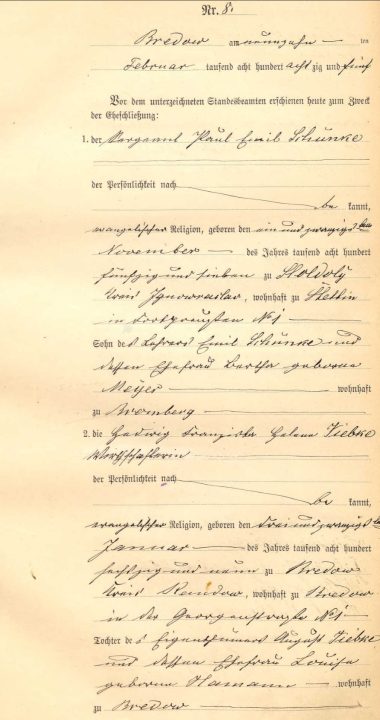 Nr. 8.
Bredow am neunzehn ten
Februar tausend acht hundert acht zig und fünf
Vor dem unterzeichneten Standesbeamten erschienen heute zum Zweck
der Eheschließung:
1. der Sergeant Paul Emil Schünke
der Persönlichkeit nach
be kannt,
evangelischer Religion, geboren den ein und zwanzigsten
November des Jahres tausend acht hundert
fünfzig und sieben zu
Kreis Inowrazlaw, wohnhaft zu Stettin
in Fort Preußen N 1
Sohn des Lehrers Emil Schünke und
dessen Ehefrau Bertha geborene
Meyer wohnhaft
zu Bromberg
2. die Hedwig Franziska Helene Viebke
der Persönlichkeit nach
be kannt,
evangelischer Religion, geboren den drei und zwanzigsten
Januar des Jahres tausend acht hundert
sechszig und neun zu Bredow
Kreis Randow, wohnhaft zu Bredow
in der Georgenstraße N 1
Tochter des Eigenthümers August Viebke
und dessen Ehefrau Louise
geborene Hamann wohnhaft
zu Bredow